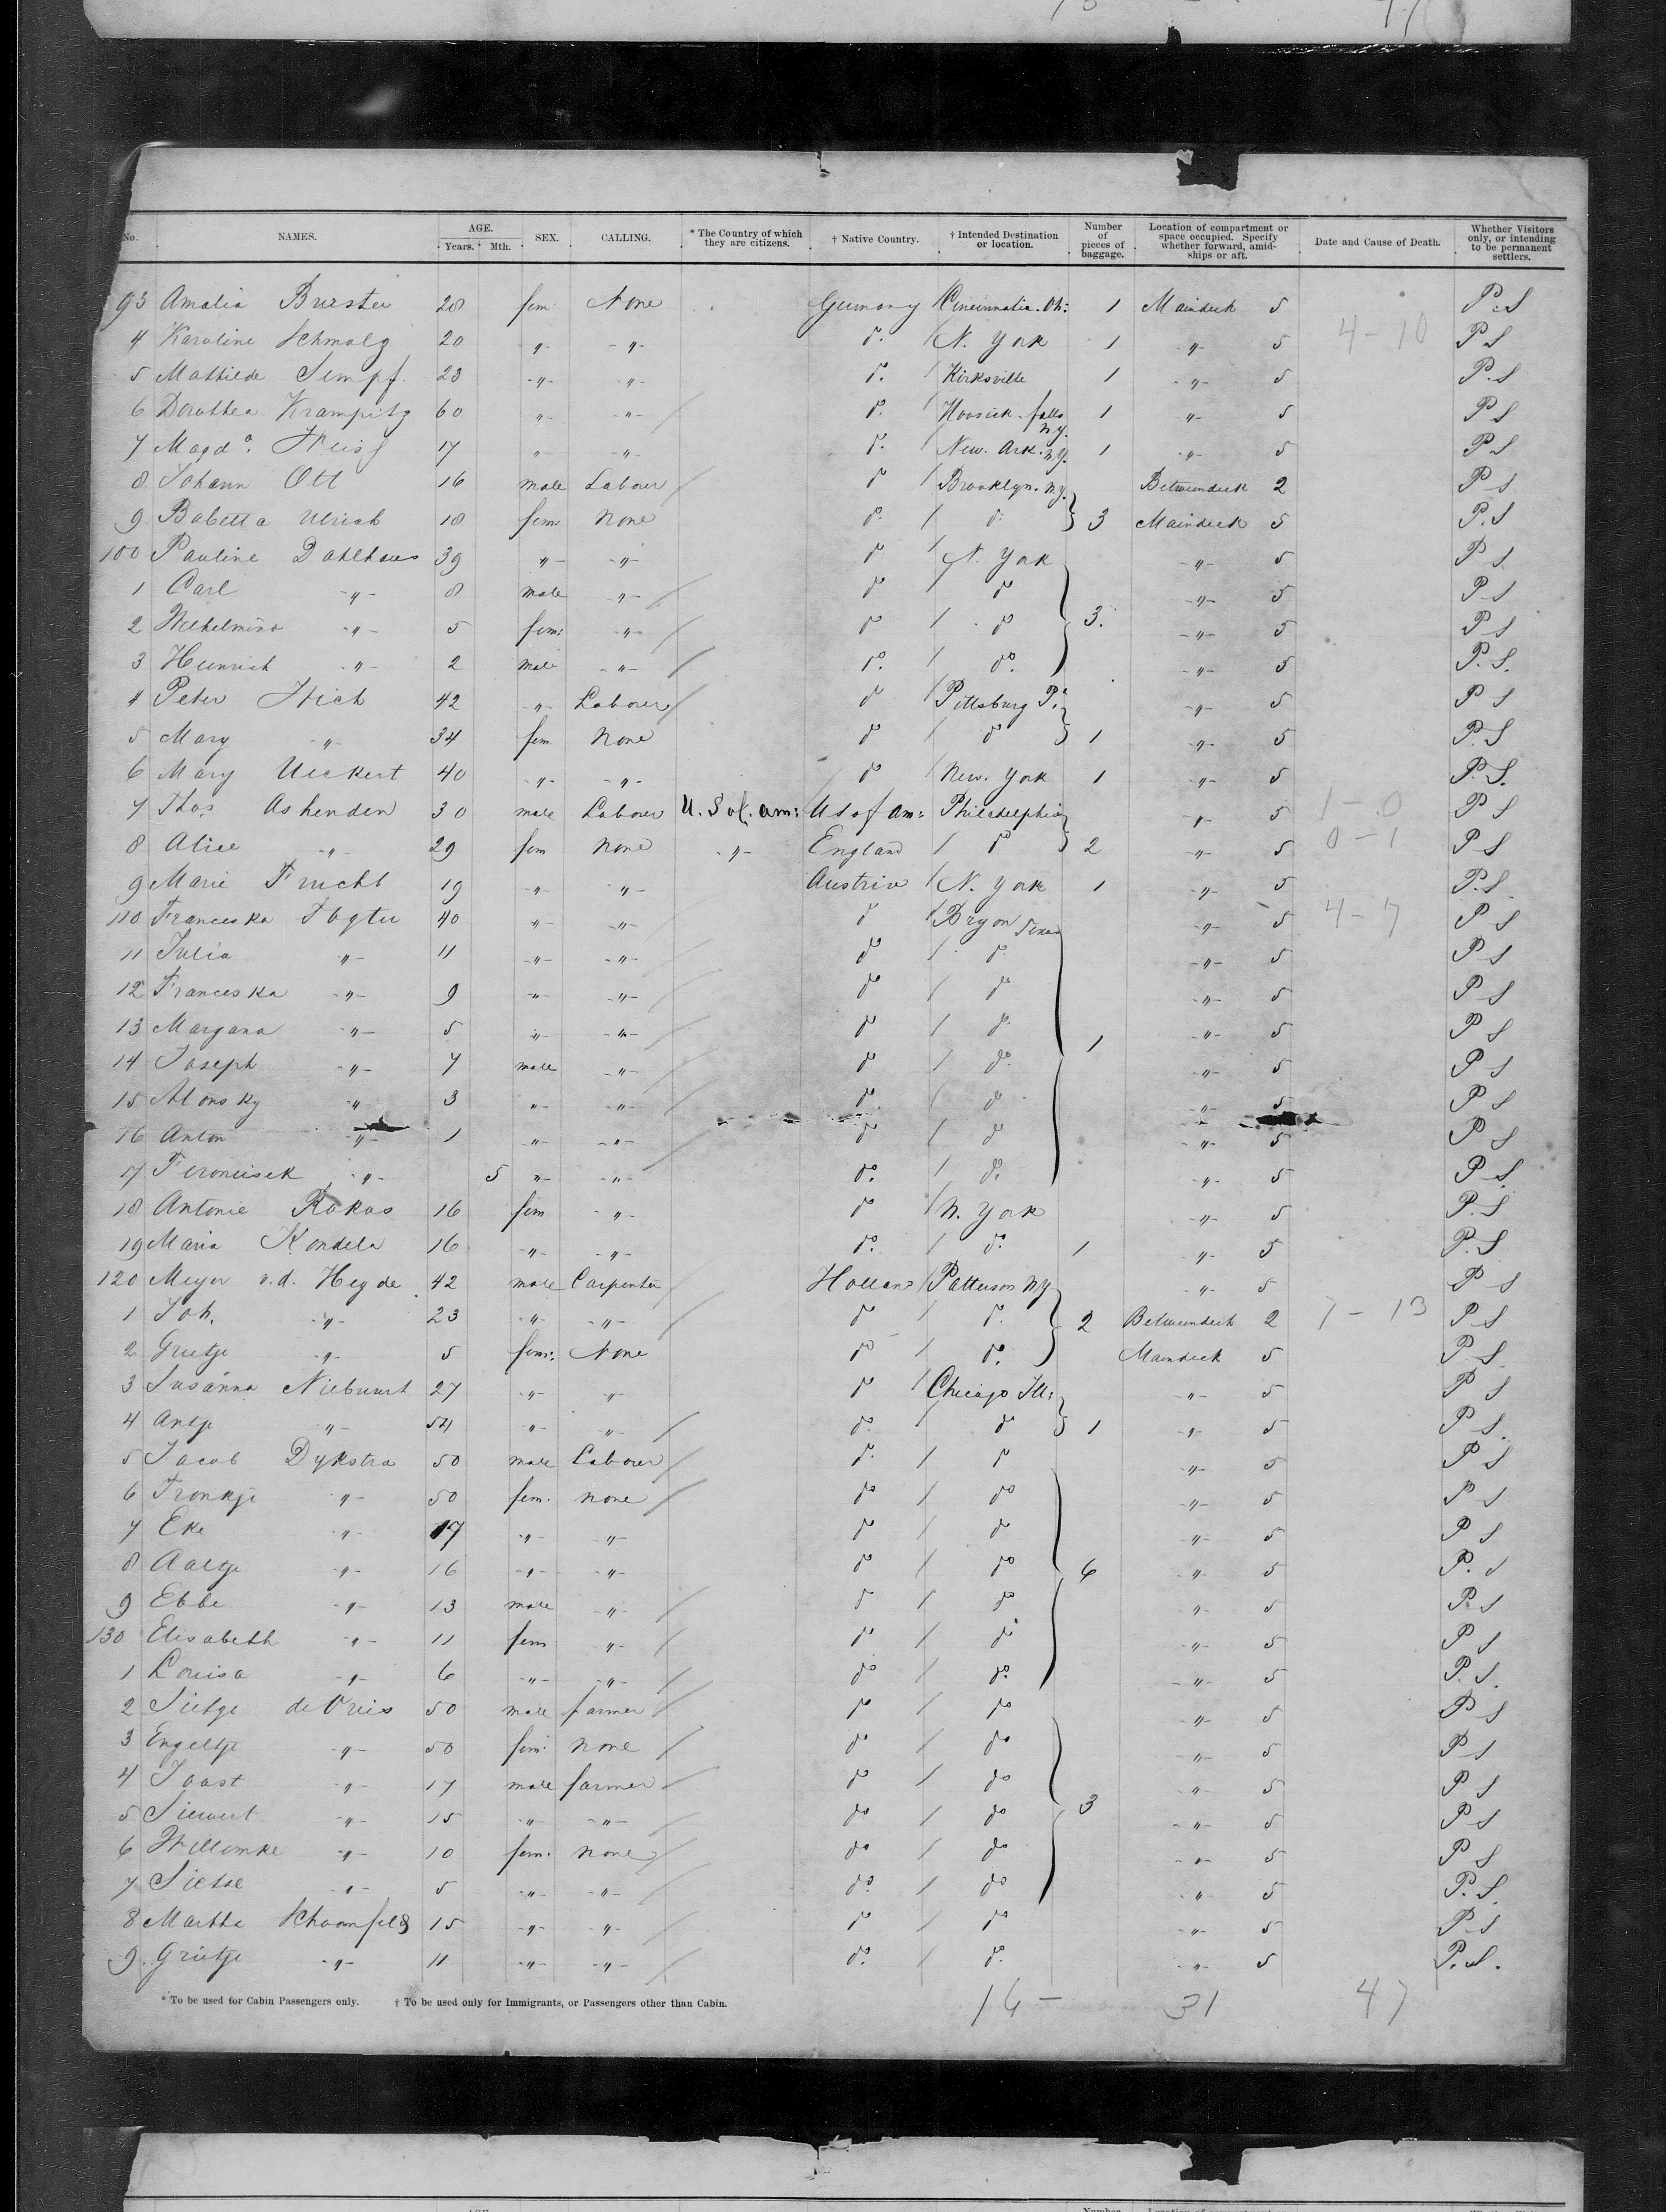 No. NAMES. AGE. Years. Mth. SEX. CALLING. * The Country of which they are citizens. † Native Country. † Intended Destination or location. Number of pieces of baggage. Location of compartment or space occupied. Specify whether forward, amidships or aft. Date and Cause of Death. Whether Visitors only, or intending to be permanent settlers.
93 Amalia Burster 28 fem None Germany Cincinnatia. Oh: 1 Maindeck 5 P.S
4 Karoline Schmalz 20 -"- -"- do. / N. York 1 -"- 5 4-10 P S
5 Mathilde Sempf 23 -"- -"- do. / Kirksville 1 -"- 5 P.S
6 Dorothea Krampitz 60 -"- -"- / do. / Hoosick-falls N.y. 1 -"- 5 P S
7 Magda. Weiss 17 -"- -"- do. / New. Ark. N.y. 1 -"- 5 P S
8 Johann Ott 16 male Labourer / do / Brooklyn. Ny. Betweendeck 2 P S
9 Babetta Ulrich 18 fem: None do. / do: 3 Maindeck 5 P.S
100 Pauline Dahlhaus 39 -"- -"- do / N. York -"- 5 P S
1 Carl -"- 8 male -"- / do / do -"- 5 P S
2 Wilhelmina -"- 5 fem: -"- / do / do 3. -"- 5 P S
3 Heinrich -"- 2 male -"- / do. / do. -"- 5 P.S.
4 Peter 42 -"- Labourer / do / Pittsburg Pa. -"- 5 P S
5 Mary -"- 34 fem. None do / do 1 -"- 5 P.S
6 Mary Ueckert 40 -"- -"- do / New. York 1 -"- 5 P.S.
7 Thos. Ashenden 30 male Labourer U.S of. am: U S of Am: Philadelphia -"- 5 1-0 P S
8 Alice -"- 29 fem None -"- England / do 2 -"- 5 0-1 P S
9 Marie Frucht 19 -"- -"- Austria / N. York 1 -"- 5 P.S.
110 Franceska 40 -"- -"- do / Bryon Texas -"- 5 4-7 P S
11 Julia -"- 11 -"- -"- / do / do. -"- 5 P S
12 Franceska -"- 9 -"- -"- / do / do -"- 5 P S
13 Margana -"- 5 -"- -"- / do / do. 1 -"- 5 P S
14 Joseph -"- 7 male -"- / do / do. -"- 5 P S
15 Alonsky -"- 3 -"- -"- / do / do -"- 5 P S
16 Anton -"- 1 -"- -"- / do / do -"- 5 P S
17 -"- 5 -"- -"- do. / do. -"- 5 P S.
18 Antonie Rakos 16 fem -"- do / N. York -"- 5 P.S
19 Maria Kondela 16 -"- -"- do. / do. 1 -"- 5 P.S
120 Meyer v.d. Heyde 42 male Carpenter Holland / Patterson Ny -"- 5 P S
1 Joh. -"- 23 -"- -"- do / do. 2 Betweendeck 2 7-13 P S
2 Grietje -"- 5 fem: None do / do. Maindeck 5 P S.
3 Susanna Niebuurt 27 -"- -"- do / Chicago Ill: -"- 5 P S
4 Antje -"- 54 -"- -"- / do. / do 1 -"- 5 P S.
5 Jacob Dykstra 50 male Labourer / do. / do -"- 5 P S
6 Fronkje -"- 50 fem. None / do / do -"- 5 P S
7 Eke -"- 17 -"- -"- do / do -"- 5 P S
8 Aaltje -"- 16 -"- -"- do / do 6 -"- 5 P.S
9 Ebbe -"- 13 male -"- / do / do -"- 5 P.S
130 Elisabeth -"- 11 fem -"- / do / do -"- 5 P S
1 Louisa -"- 6 -"- -"- / do / do. -"- 5 P.S.
2 Sietge de Vries 50 male farmer / do / do -"- 5 P S
3 Engeltje -"- 50 fem: None / do / do -"- 5 P S
4 Joast -"- 17 male farmer / do / do -"- 5 P S
5 Siewert -"- 15 -"- -"- / do / do 3 -"- 5 P S
6 Willemke -"- 10 fem. None / do / do -"- 5 P S
7 Sietse -"- 5 -"- -"- / do. / do -"- 5 P.S.
8 Martha Schoonfeld 15 -"- -"- / do / do -"- 5 P.S
9. Grietje -"- 11 -"- -"- / do. / do. -"- 5 P.S.
* To be used for Cabin Passengers only. † To be used only for Immigrants, or Passengers other than Cabin.
16 - 31 47